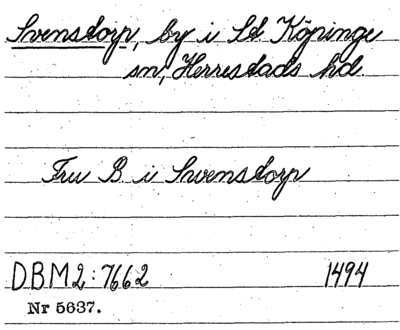 Svenstorp, by i St. Köpinge
sn, Herrestads hd.
Fru B. i Swenstorp
DBM2:7662 1494
Nr 5637.